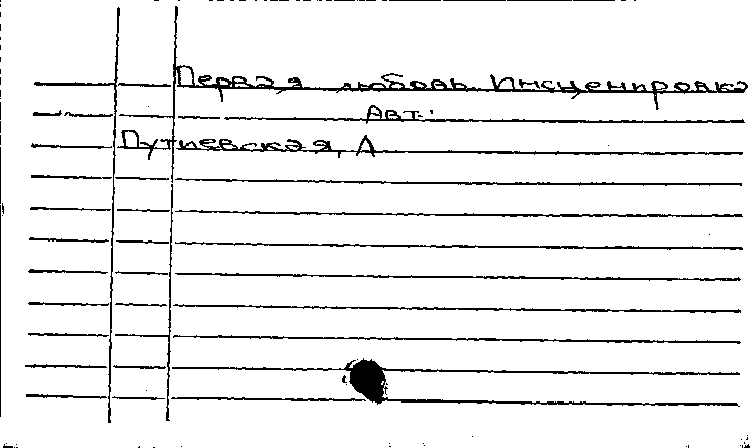 Первая любовь. Инсценировка
Авт.:
Путиевская, А